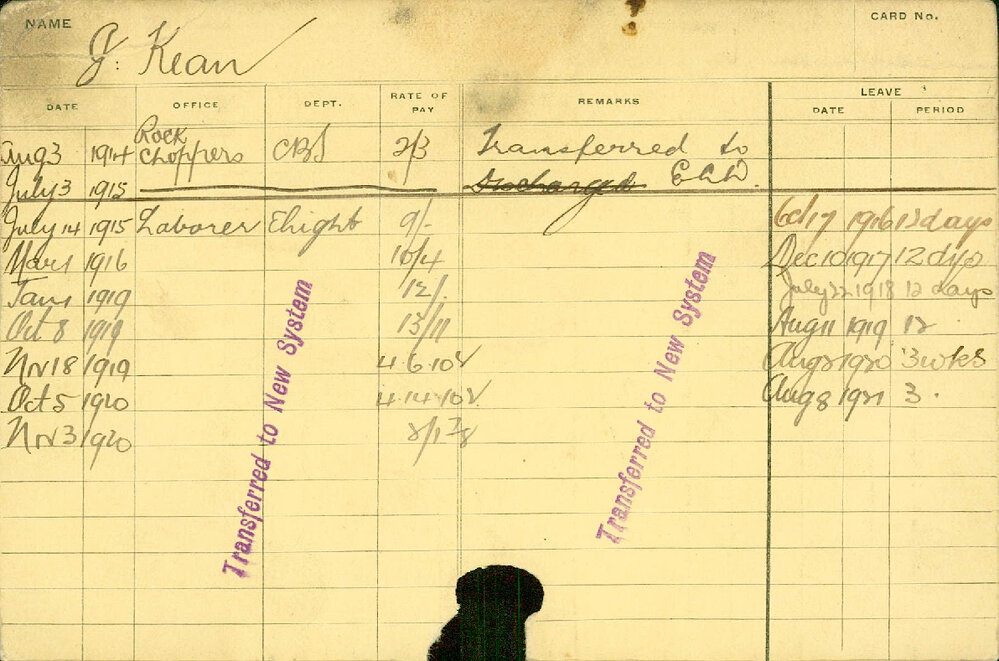 NAME
CARD No.
J. Kean
DATE OFFICE DEPT. RATE OF PAY REMARKS LEAVE
DATE PERIOD
Aug 3 1914 Rock Choppers CBS 2/3 Transferred to
July 3 1915 Discharged
July 14 1915 Laborer Elight 9/- Oct 17 1916 12 days
Mar 1 1916 10/4 Dec 10 1917 12 dys
Jan 1 1919 12/. July 22 1918 12 days
Oct 8 1919 13/11 Aug 11 1919 12
Nov 18 1919 4.6.10½ Aug 2 1920 3 wks
Oct 5 1920 4.14.10½ Aug 8 1921 3.
Nov 3 1920
Transferred to New System
Transferred to New System